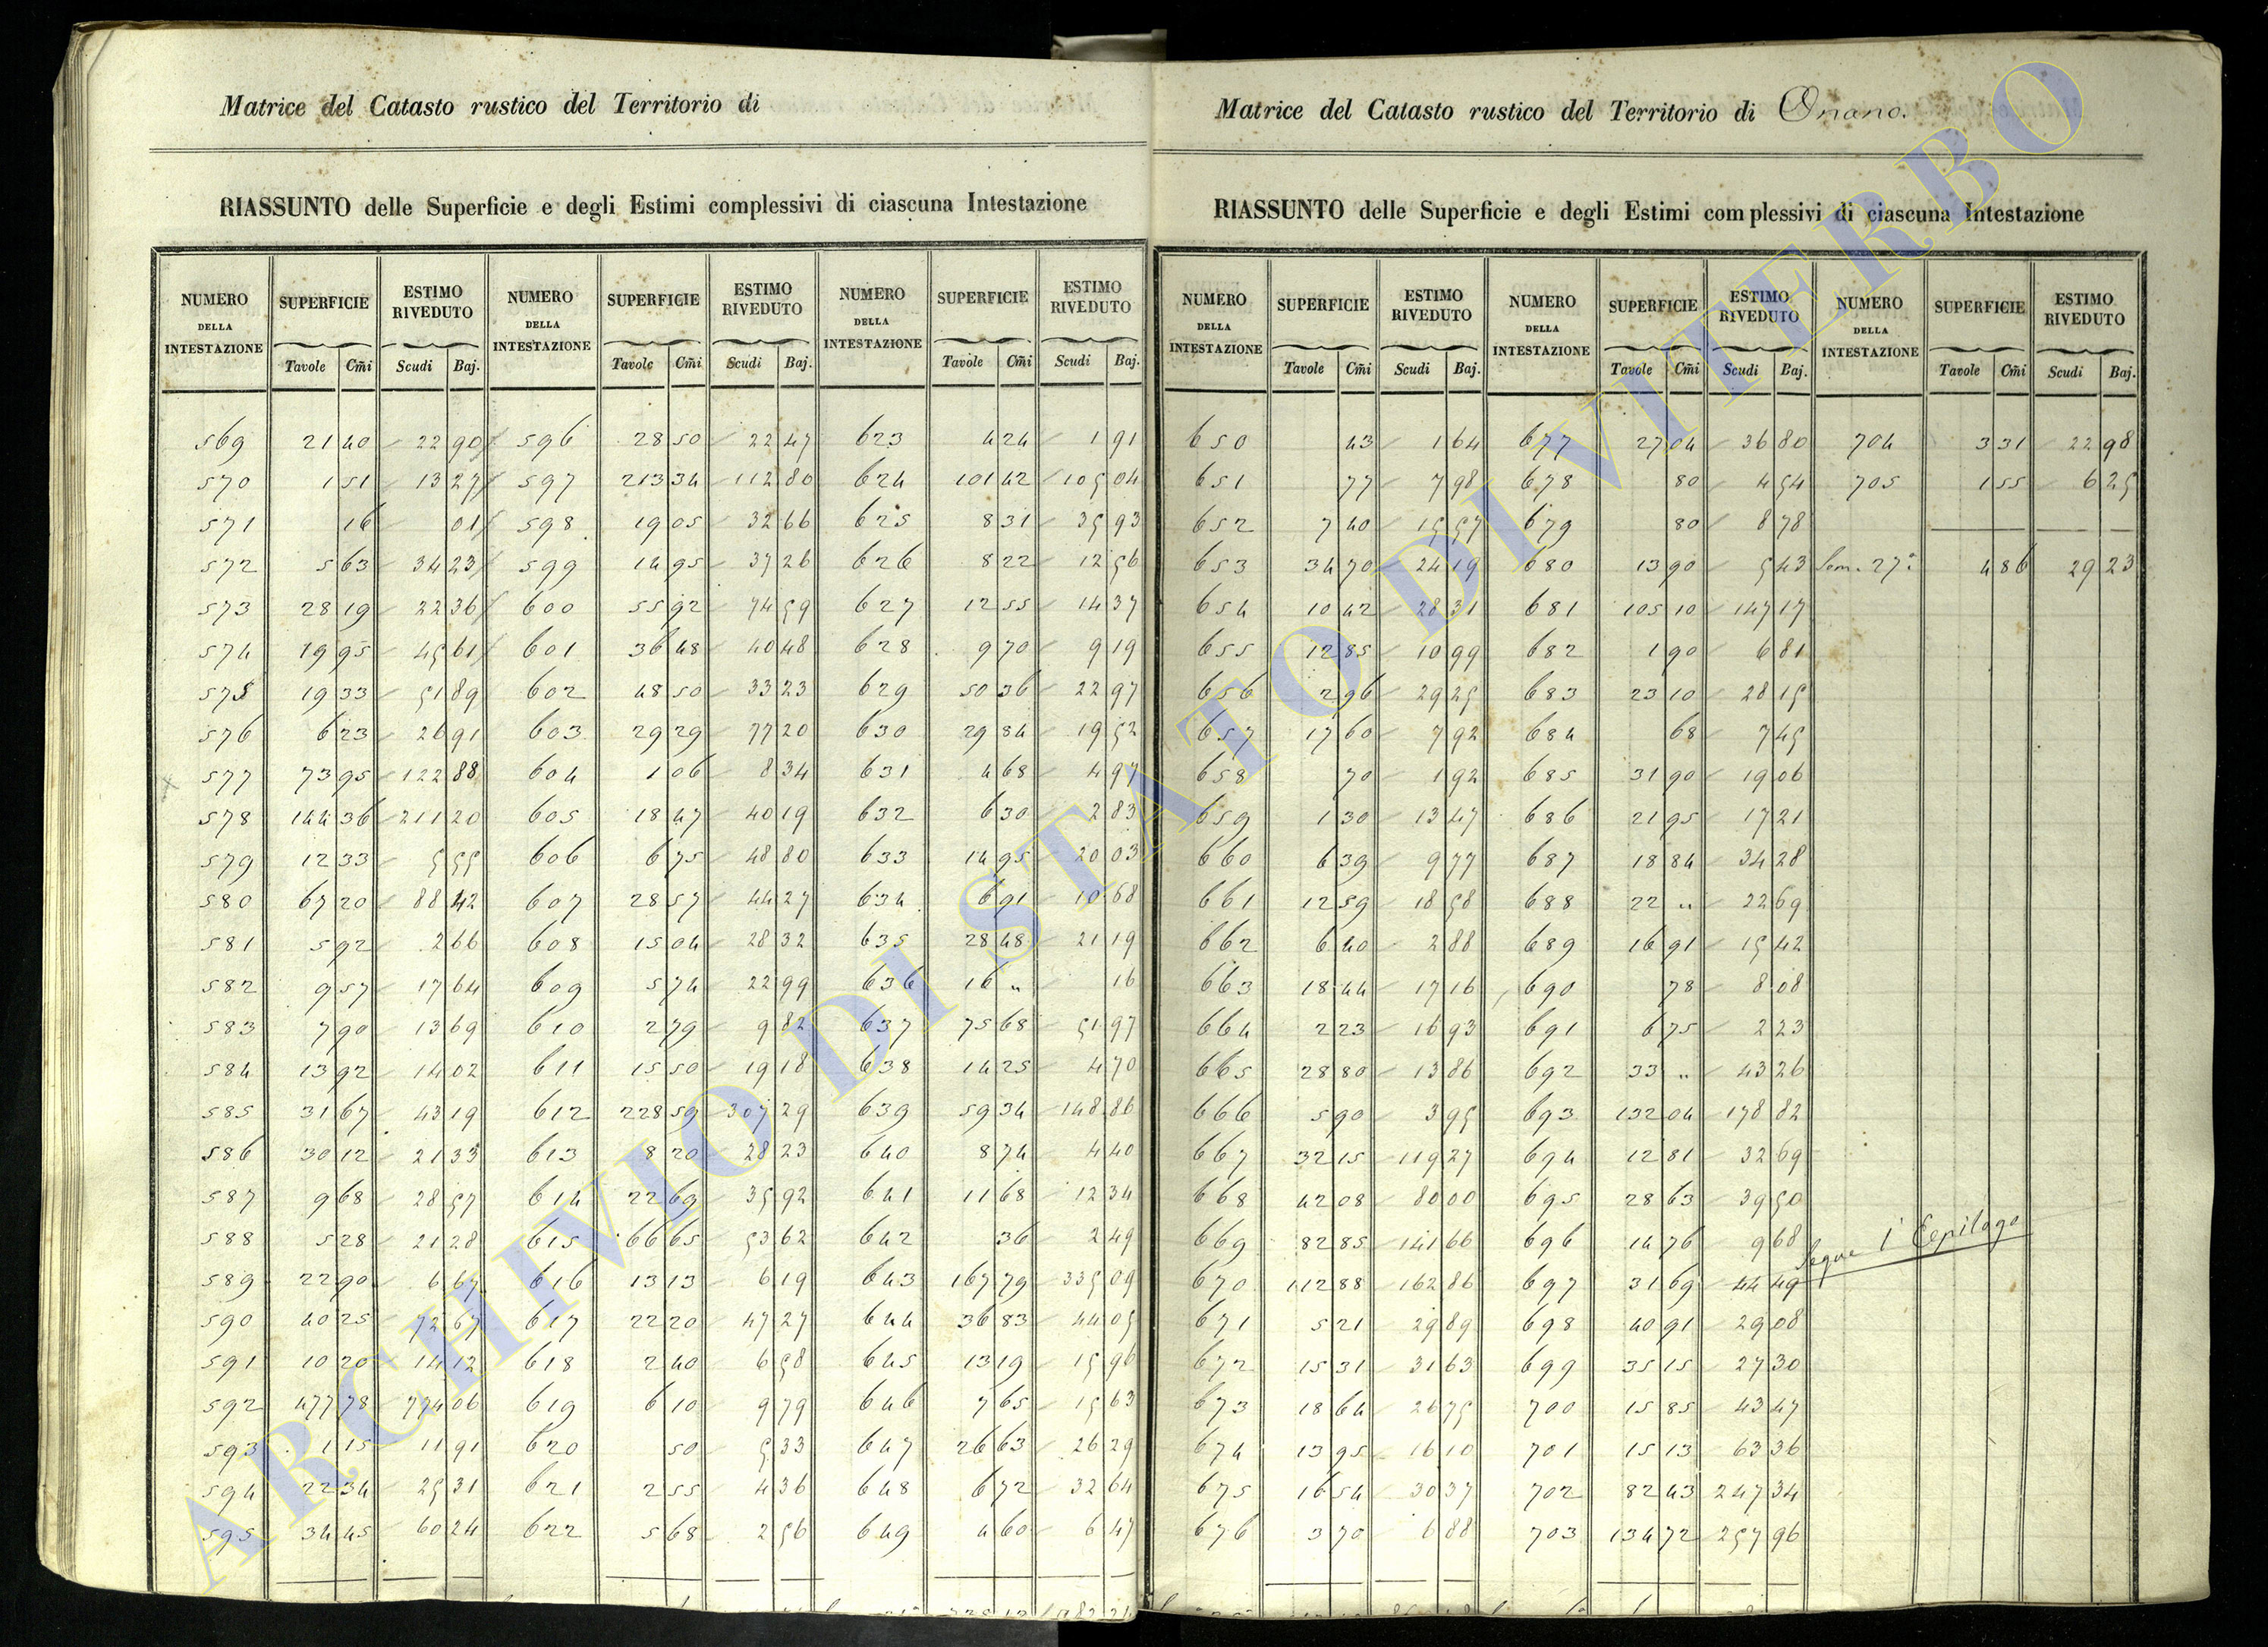 Matrice del Catasto rustico del Territorio di
RIASSUNTO delle Superficie e degli Estimi complessivi di ciascuna Intestazione
NUMERO DELLA INTESTAZIONE SUPERFICIE ESTIMO RIVEDUTO NUMERO DELLA INTESTAZIONE SUPERFICIE ESTIMO RIVEDUTO NUMERO DELLA INTESTAZIONE SUPERFICIE ESTIMO RIVEDUTO
Tavole Cmi Scudi Baj. Tavole Cmi Scudi Baj. Tavole Cmi Scudi Baj.
569 21 40 22 90 596 28 50 22 47 623 4 24 1 91
570 1 51 13 27 597 213 34 112 80 624 101 42 105 04
571 16 01 598 19 05 32 66 625 8 31 35 93
572 5 63 34 23 599 14 95 37 26 626 8 22 12 56
573 28 19 22 36 600 55 92 74 59 627 12 55 14 37
574 19 95 45 61 601 36 48 40 48 628 9 70 9 19
575 19 33 51 89 602 48 50 33 23 629 50 36 22 97
576 6 23 26 91 603 29 29 77 20 630 29 84 19 52
577 73 95 122 88 604 1 06 8 34 631 4 68 4 97
578 144 36 211 20 605 18 47 40 19 632 6 30 2 83
579 12 33 5 55 606 6 75 48 80 633 14 95 20 03
580 67 20 88 42 607 28 57 44 27 634 6 91 10 68
581 5 92 2 66 608 15 04 28 32 635 28 48 21 19
582 9 57 17 64 609 5 74 22 99 636 16 " 16
583 7 90 13 69 610 2 79 9 82 637 75 68 51 97
584 13 92 14 02 611 15 50 19 18 638 14 25 4 70
585 31 67 43 19 612 228 59 307 29 639 59 34 148 86
586 30 12 21 33 613 8 20 28 23 640 8 74 4 40
587 9 68 28 57 614 22 69 35 92 641 11 68 12 34
588 5 28 21 28 615 66 65 53 62 642 36 2 49
589 22 90 6 67 616 13 13 6 19 643 167 79 335 09
590 40 25 72 67 617 22 20 47 27 644 36 83 44 05
591 10 20 14 12 618 2 40 6 58 645 13 19 15 96
592 477 78 774 06 619 6 10 9 79 646 7 65 15 63
593 1 15 11 91 620 50 5 33 647 26 63 26 29
594 22 34 25 31 621 2 55 4 36 648 6 72 32 64
595 34 45 60 24 622 5 68 2 56 649 4 60 6 47
Matrice del Catasto rustico del Territorio di Onano.
RIASSUNTO delle Superficie e degli Estimi complessivi di ciascuna Intestazione
NUMERO DELLA INTESTAZIONE SUPERFICIE ESTIMO RIVEDUTO NUMERO DELLA INTESTAZIONE SUPERFICIE ESTIMO RIVEDUTO NUMERO DELLA INTESTAZIONE SUPERFICIE ESTIMO RIVEDUTO
Tavole Cmi Scudi Baj. Tavole Cmi Scudi Baj. Tavole Cmi Scudi Baj.
650 43 1 64 677 27 04 36 80 704 3 31 22 98
651 77 7 98 678 80 4 54 705 1 55 6 25
652 7 40 15 57 679 80 8 78
653 34 70 24 19 680 13 90 5 43 Som. 27a 4 86 29 23
654 10 42 28 31 681 105 10 147 17
655 12 85 10 99 682 1 90 6 81
656 2 96 29 25 683 23 10 28 15
657 17 60 7 92 684 68 7 45
658 70 1 92 685 31 90 19 06
659 1 30 13 47 686 21 95 17 21
660 6 39 9 77 687 18 84 34 28
661 12 59 18 58 688 22 " 22 69
662 6 40 2 88 689 16 91 15 42
663 18 44 17 16 690 78 8 08
664 2 23 16 93 691 6 75 2 23
665 28 80 13 86 692 33 " 43 26
666 5 90 3 95 693 132 04 178 82
667 32 15 119 27 694 12 81 32 69
668 42 08 80 00 695 28 63 39 50
669 82 85 141 66 696 14 76 9 68
Segue l'Epilogo
670 112 88 162 86 697 31 69 44 49
671 5 21 29 89 698 40 91 29 08
672 15 31 31 63 699 35 15 27 30
673 18 64 26 75 700 15 85 43 47
674 13 95 16 10 701 15 13 63 36
675 16 54 30 37 702 82 43 247 34
676 3 70 6 88 703 134 72 257 96
ARCHIVIO DI STATO DI VITERBO